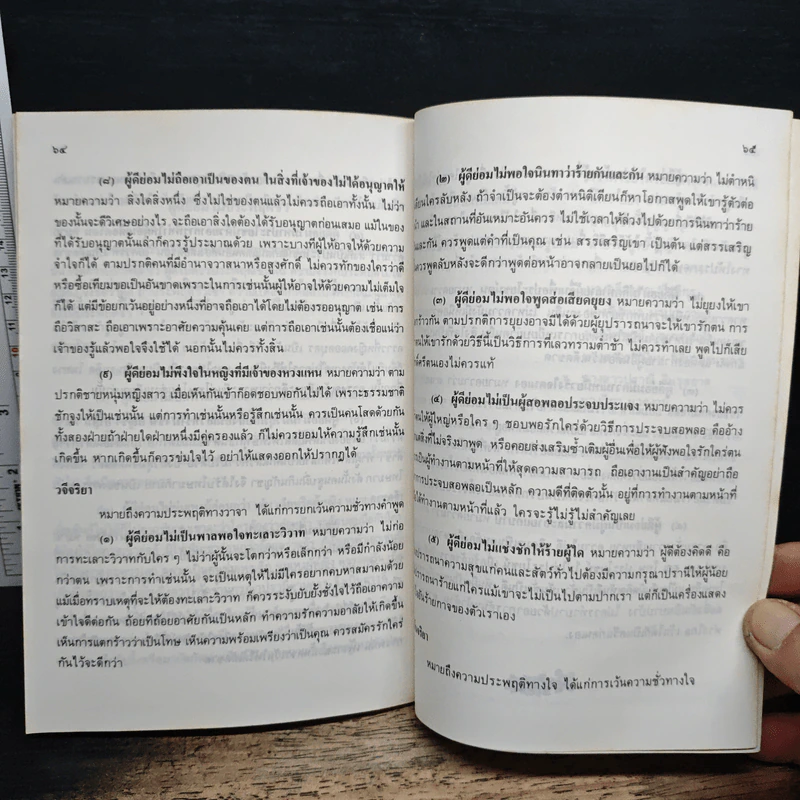 ๖๔
(๘) ผู้ดีย่อมไม่ถือเอาเป็นของตน ในสิ่งที่เจ้าของไม่ได้อนุญาตให้
หมายความว่า สิ่งใดสิ่งหนึ่ง ซึ่งไม่ใช่ของตนแล้วไม่ควรถือเอาทั้งนั้น ไม่ว่า
ของนั้นจะดีวิเศษอย่างไร จะถือเอาสิ่งใดต้องได้รับอนุญาตก่อนเสมอ แม้ในของ
ที่ได้รับอนุญาตนั้นเล่าก็ควรรู้ประมาณด้วย เพราะบางทีผู้ให้อาจให้ด้วยความ
จำใจก็ได้ ตามปรกติคนที่มีอำนาจวาสนาหรือสูงศักดิ์ ไม่ควรทักของใครว่าดี
หรือซื้อเทียมขอเป็นอันขาดเพราะในการเช่นนั้นผู้ให้อาจให้ด้วยความไม่เต็มใจ
ก็ได้ แต่มีข้อยกเว้นอยู่อย่างหนึ่งที่อาจถือเอาได้โดยไม่ต้องรออนุญาต เช่น การ
ถือวิสาสะ ถือเอาเพราะอาศัยความคุ้นเคย แต่การถือเอาเช่นนั้นต้องเชื่อแน่ว่า
เจ้าของรู้แล้วพอใจจึงใช้ได้ นอกนั้นไม่ควรทั้งสิ้น
(๙) ผู้ดีย่อมไม่พึงใจในหญิงที่มีเจ้าของหวงแหน หมายความว่า ตาม
ปรกติชายหนุ่มหญิงสาว เมื่อเห็นกันเข้าก็อดชอบพอกันไม่ได้ เพราะธรรมชาติ
ชักจูงให้เป็นเช่นนั้น แต่การทำเช่นนั้นหรือรู้สึกเช่นนั้น ควรเป็นคนโสดด้วยกัน
ทั้งสองฝ่ายถ้าฝ่ายใดฝ่ายหนึ่งมีคู่ครองแล้ว ก็ไม่ควรยอมให้ความรู้สึกเช่นนั้น
เกิดขึ้น หากเกิดขึ้นก็ควรข่มใจไว้ อย่าให้แสดงออกให้ปรากฏได้
วจีจริยา
หมายถึงความประพฤติทางวาจา ได้แก่การยกเว้นความชั่วทางคำพูด
(๑) ผู้ดีย่อมไม่เป็นพาลพอใจทะเลาะวิวาท หมายความว่า ไม่ก่อ
การทะเลาะวิวาทกับใคร ๆ ไม่ว่าผู้นั้นจะโตกว่าหรือเล็กกว่า หรือมีกำลังน้อย
กว่าตน เพราะการทำเช่นนั้น จะเป็นเหตุให้ไม่มีใครอยากคบหาสมาคมด้วย
แม้เมื่อทราบเหตุที่จะให้ต้องทะเลาะวิวาท ก็ควรระงับยับยั้งชั่งใจไว้ถือเอาความ
เข้าใจดีต่อกัน ถ้อยทีถ้อยอาศัยกันเป็นหลัก ทำความรักความอาลัยให้เกิดขึ้น
เห็นการแตกร้าวว่าเป็นโทษ เห็นความพร้อมเพรียงว่าเป็นคุณ ควรสมัครรักใคร่
กันไว้จะดีกว่า
๖๕
(๒) ผู้ดีย่อมไม่พอใจนินทาว่าร้ายกันและกัน หมายความว่า ไม่ตำหนิ
เตียนใครลับหลัง ถ้าจำเป็นจะต้องตำหนิติเตียนก็หาโอกาสพูดให้เขารู้ตัวต่อ
และในสถานที่อันเหมาะอันควร ไม่ใช้เวลาให้ล่วงไปด้วยการนินทาว่าร้าย
และกัน ควรพูดแต่คำที่เป็นคุณ เช่น สรรเสริญเขา เป็นต้น แต่สรรเสริญ
ควรพูดลับหลังจะดีกว่าพูดต่อหน้าอาจกลายเป็นยอไปก็ได้
(๓) ผู้ดีย่อมไม่พอใจพูดส่อเสียดยุยง หมายความว่า ไม่ยุยงให้เขา
กร้าวกัน ตามปรกติการยุยงอาจมีได้ด้วยผู้ยุปรารถนาจะให้เขารักตน การ
ให้เขารักด้วยวิธีนี้เป็นวิธีการที่เลวทรามต่ำช้า ไม่ควรทำเลย พูดไปก็เสีย
ตนเองไม่ควรแท้
(๔) ผู้ดีย่อมไม่เป็นผู้สอพลอประจบประแจง หมายความว่า ไม่ควร
ให้ผู้ใหญ่หรือใคร ๆ ชอบพอรักใคร่ด้วยวิธีการประจบสอพลอ คืออ้าง
สิ่งที่ไม่จริงมาพูด หรือคอยส่งเสริมซ้ำเติมผู้อื่นเพื่อให้ผู้ฟังพอใจรักใคร่ตน
เป็นผู้ทำงานตามหน้าที่ให้สุดความสามารถ ถือเอางานเป็นสำคัญอย่าถือ
การประจบสอพลอเป็นหลัก ความดีที่ติดตัวนั้น อยู่ที่การทำงานตามหน้าที่
ได้ทำงานตามหน้าที่แล้ว ใครจะรู้ไม่รู้ไม่สำคัญเลย
(๕) ผู้ดีย่อมไม่แช่งชักให้ร้ายผู้ใด หมายความว่า ผู้ดีต้องคิดดี คือ
ปรารถนาความสุขแก่คนและสัตว์ทั่วไปต้องมีความกรุณาปรานีให้ผู้น้อย
ปรารถนาร้ายแก่ใครแม้เขาจะไม่เป็นไปตามปากเรา แต่ก็เป็นเครื่องแสดง
ร้ายกาจของตัวเราเอง
จริยา
หมายถึงความประพฤติทางใจ ได้แก่การเว้นความชั่วทางใจ